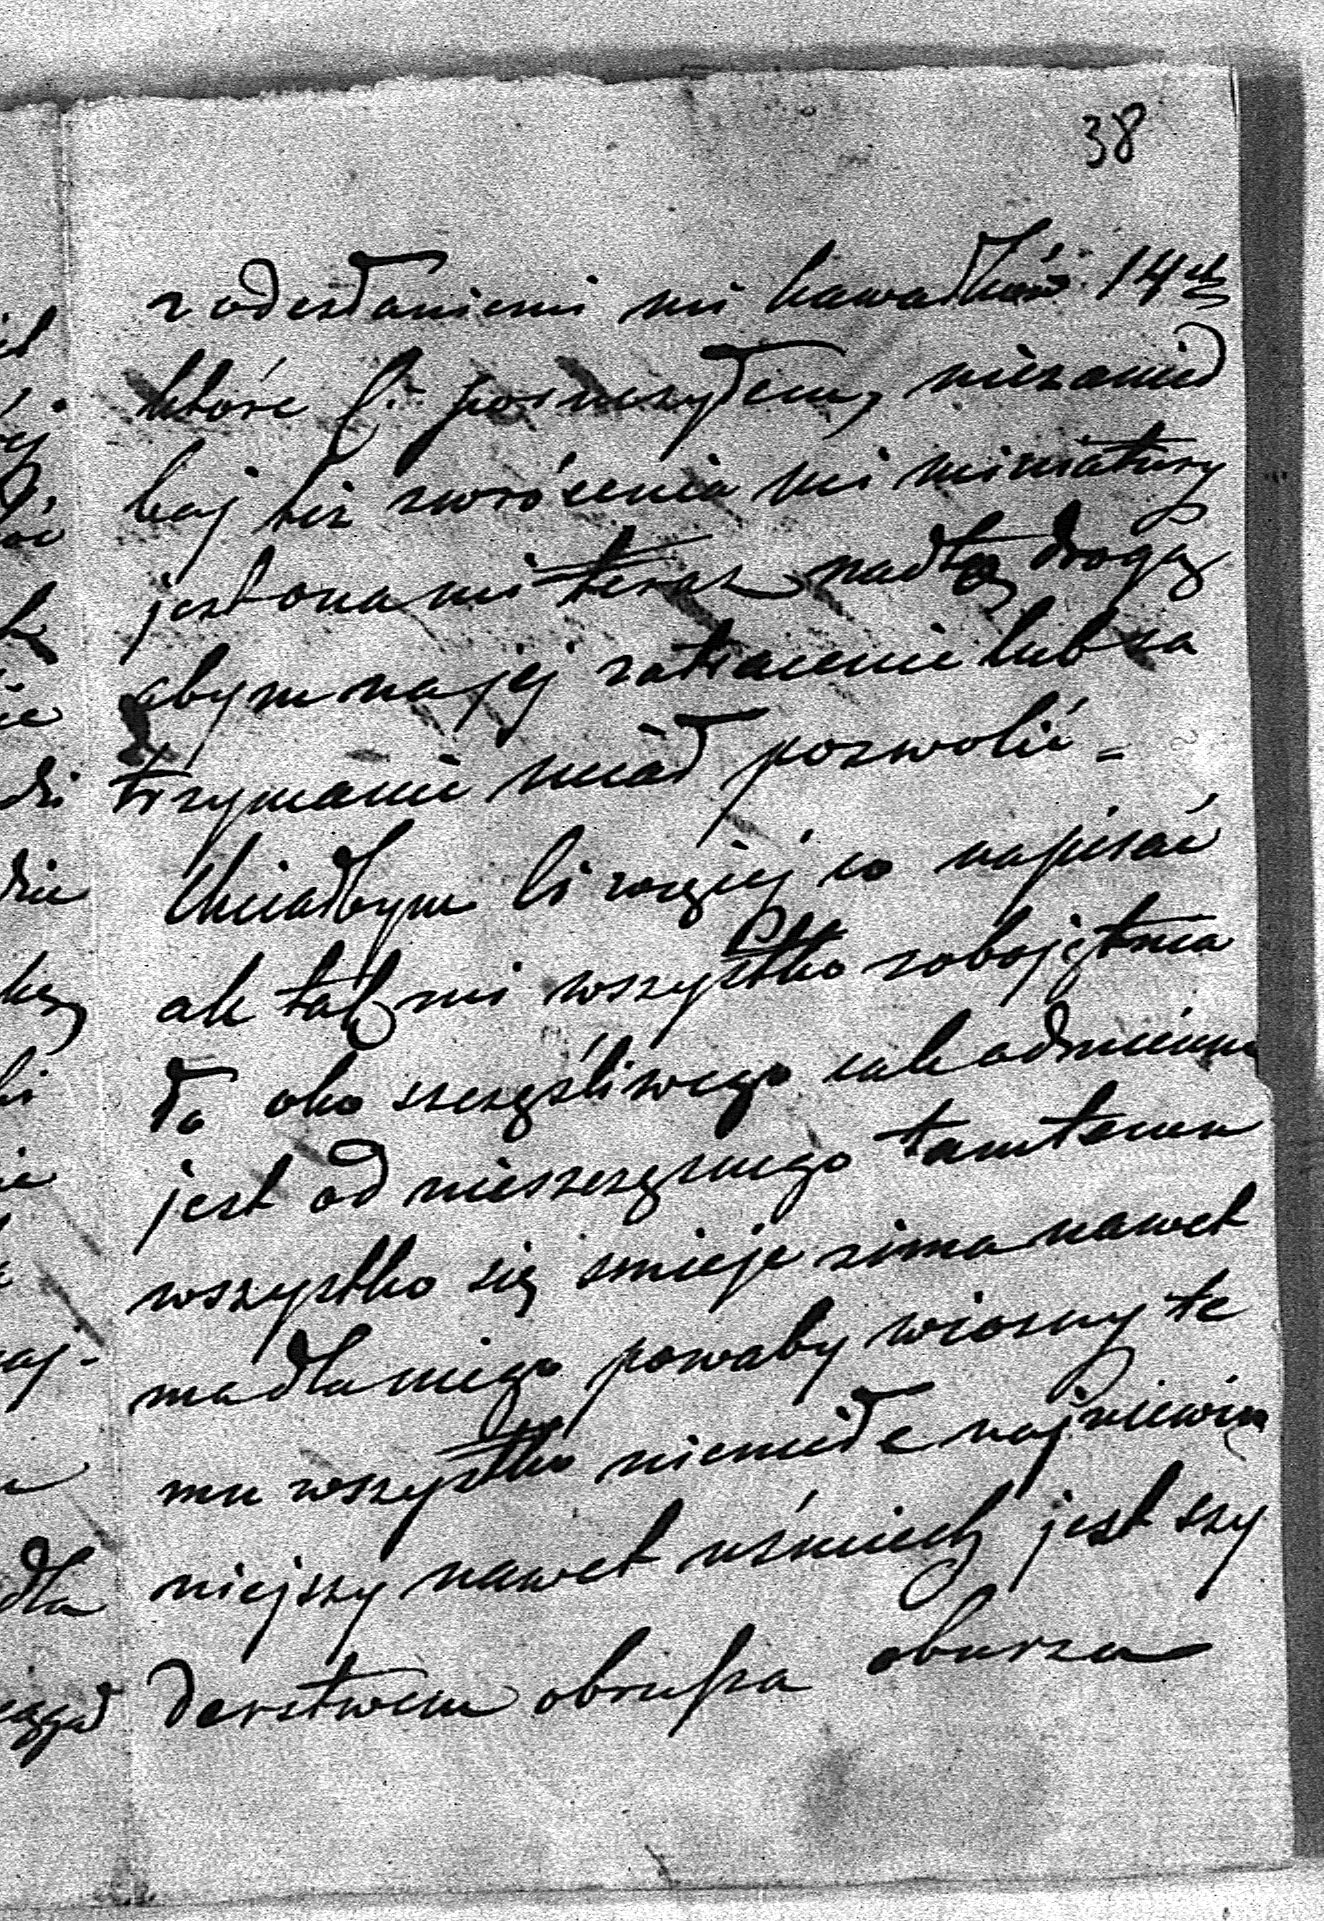 38
z odesłaniem mi kawałków 14ch
które Ci pożyczyłem, niezanied
baj też zwrócenia mi miniatury
jest ona mi teraz nadto drogą
abym na jej zatracenie lub za
trzymanie miał pozwolić =
Chciałbym Ci więcej co napisać
ale tak mi wszystko zobojętnia
ło oko szczęśliwego cale odmienne
jest od nieszczęsnego tamtemu
wszystko się smieje zima nawet
ma dla niego powaby wiosny te
mu wszystko niemiłe najniewin
niejszy nawet uśmiech jest szy
derstwem obrusza oburza